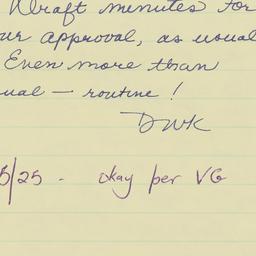 Draft minutes for
ur approval, as usual
Even more than
ual — routine!
DWK
5/25 - okay per VG